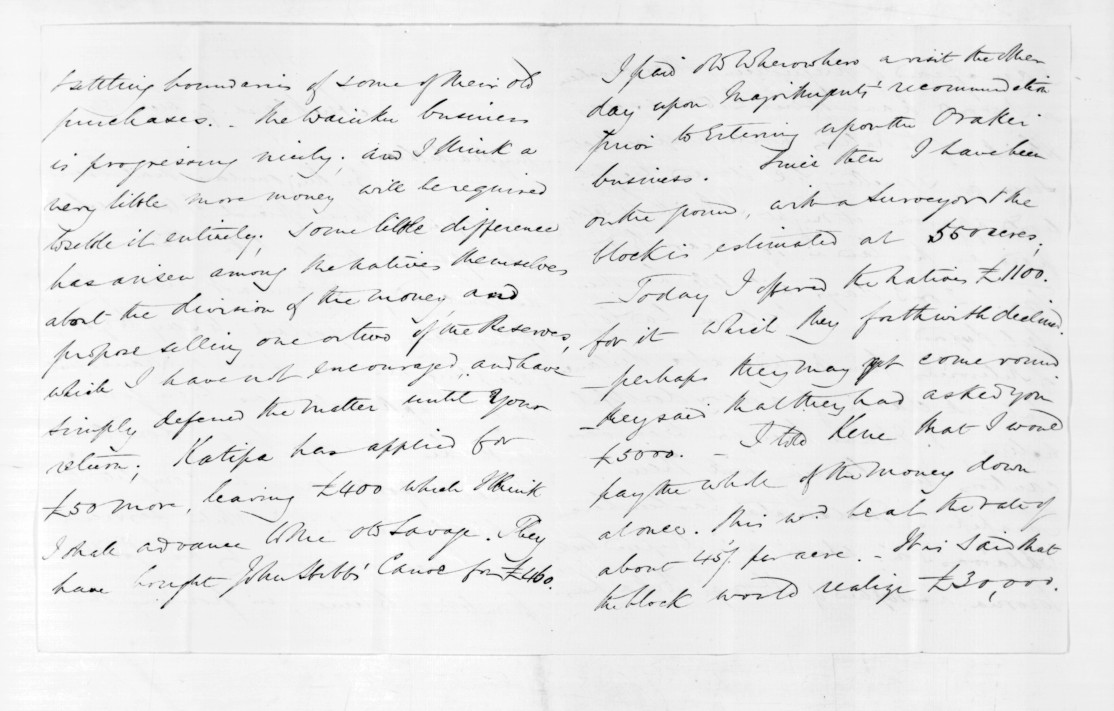 settling boundaries of some of their old
purchases. - The Waiuku business
is progressing nicely; and I think a
very little more money will be required
to settle it entirely; some little difference
has arisen among the natives themselves
about the division of the money, and
propose selling one or two of the Reserves,
which I have not encouraged, and have
simply deferred the matter until your
return; Katipa has applied for
£50 more, leaving £400 which I think
I shall advance to the old Savage. They
have bought John Hobbs' Canoe for £460.
I paid old Wherowhero a visit the other
day upon Major Nugent's recommendation
prior to Entering upon the Orakei
business. Since then I have been
on the ground, with a Surveyor & the
block is estimated at 500 acres;
- Today I offered the natives £1100.
for it which they forthwith declined
- perhaps they may yet come round
- they said that they had asked you
£5000. - I told Kene that I would
pay the whole of the money down
at once. This wd. be at the rate of
about 45/ per acre. - It is said that
the block would realize £30,000.